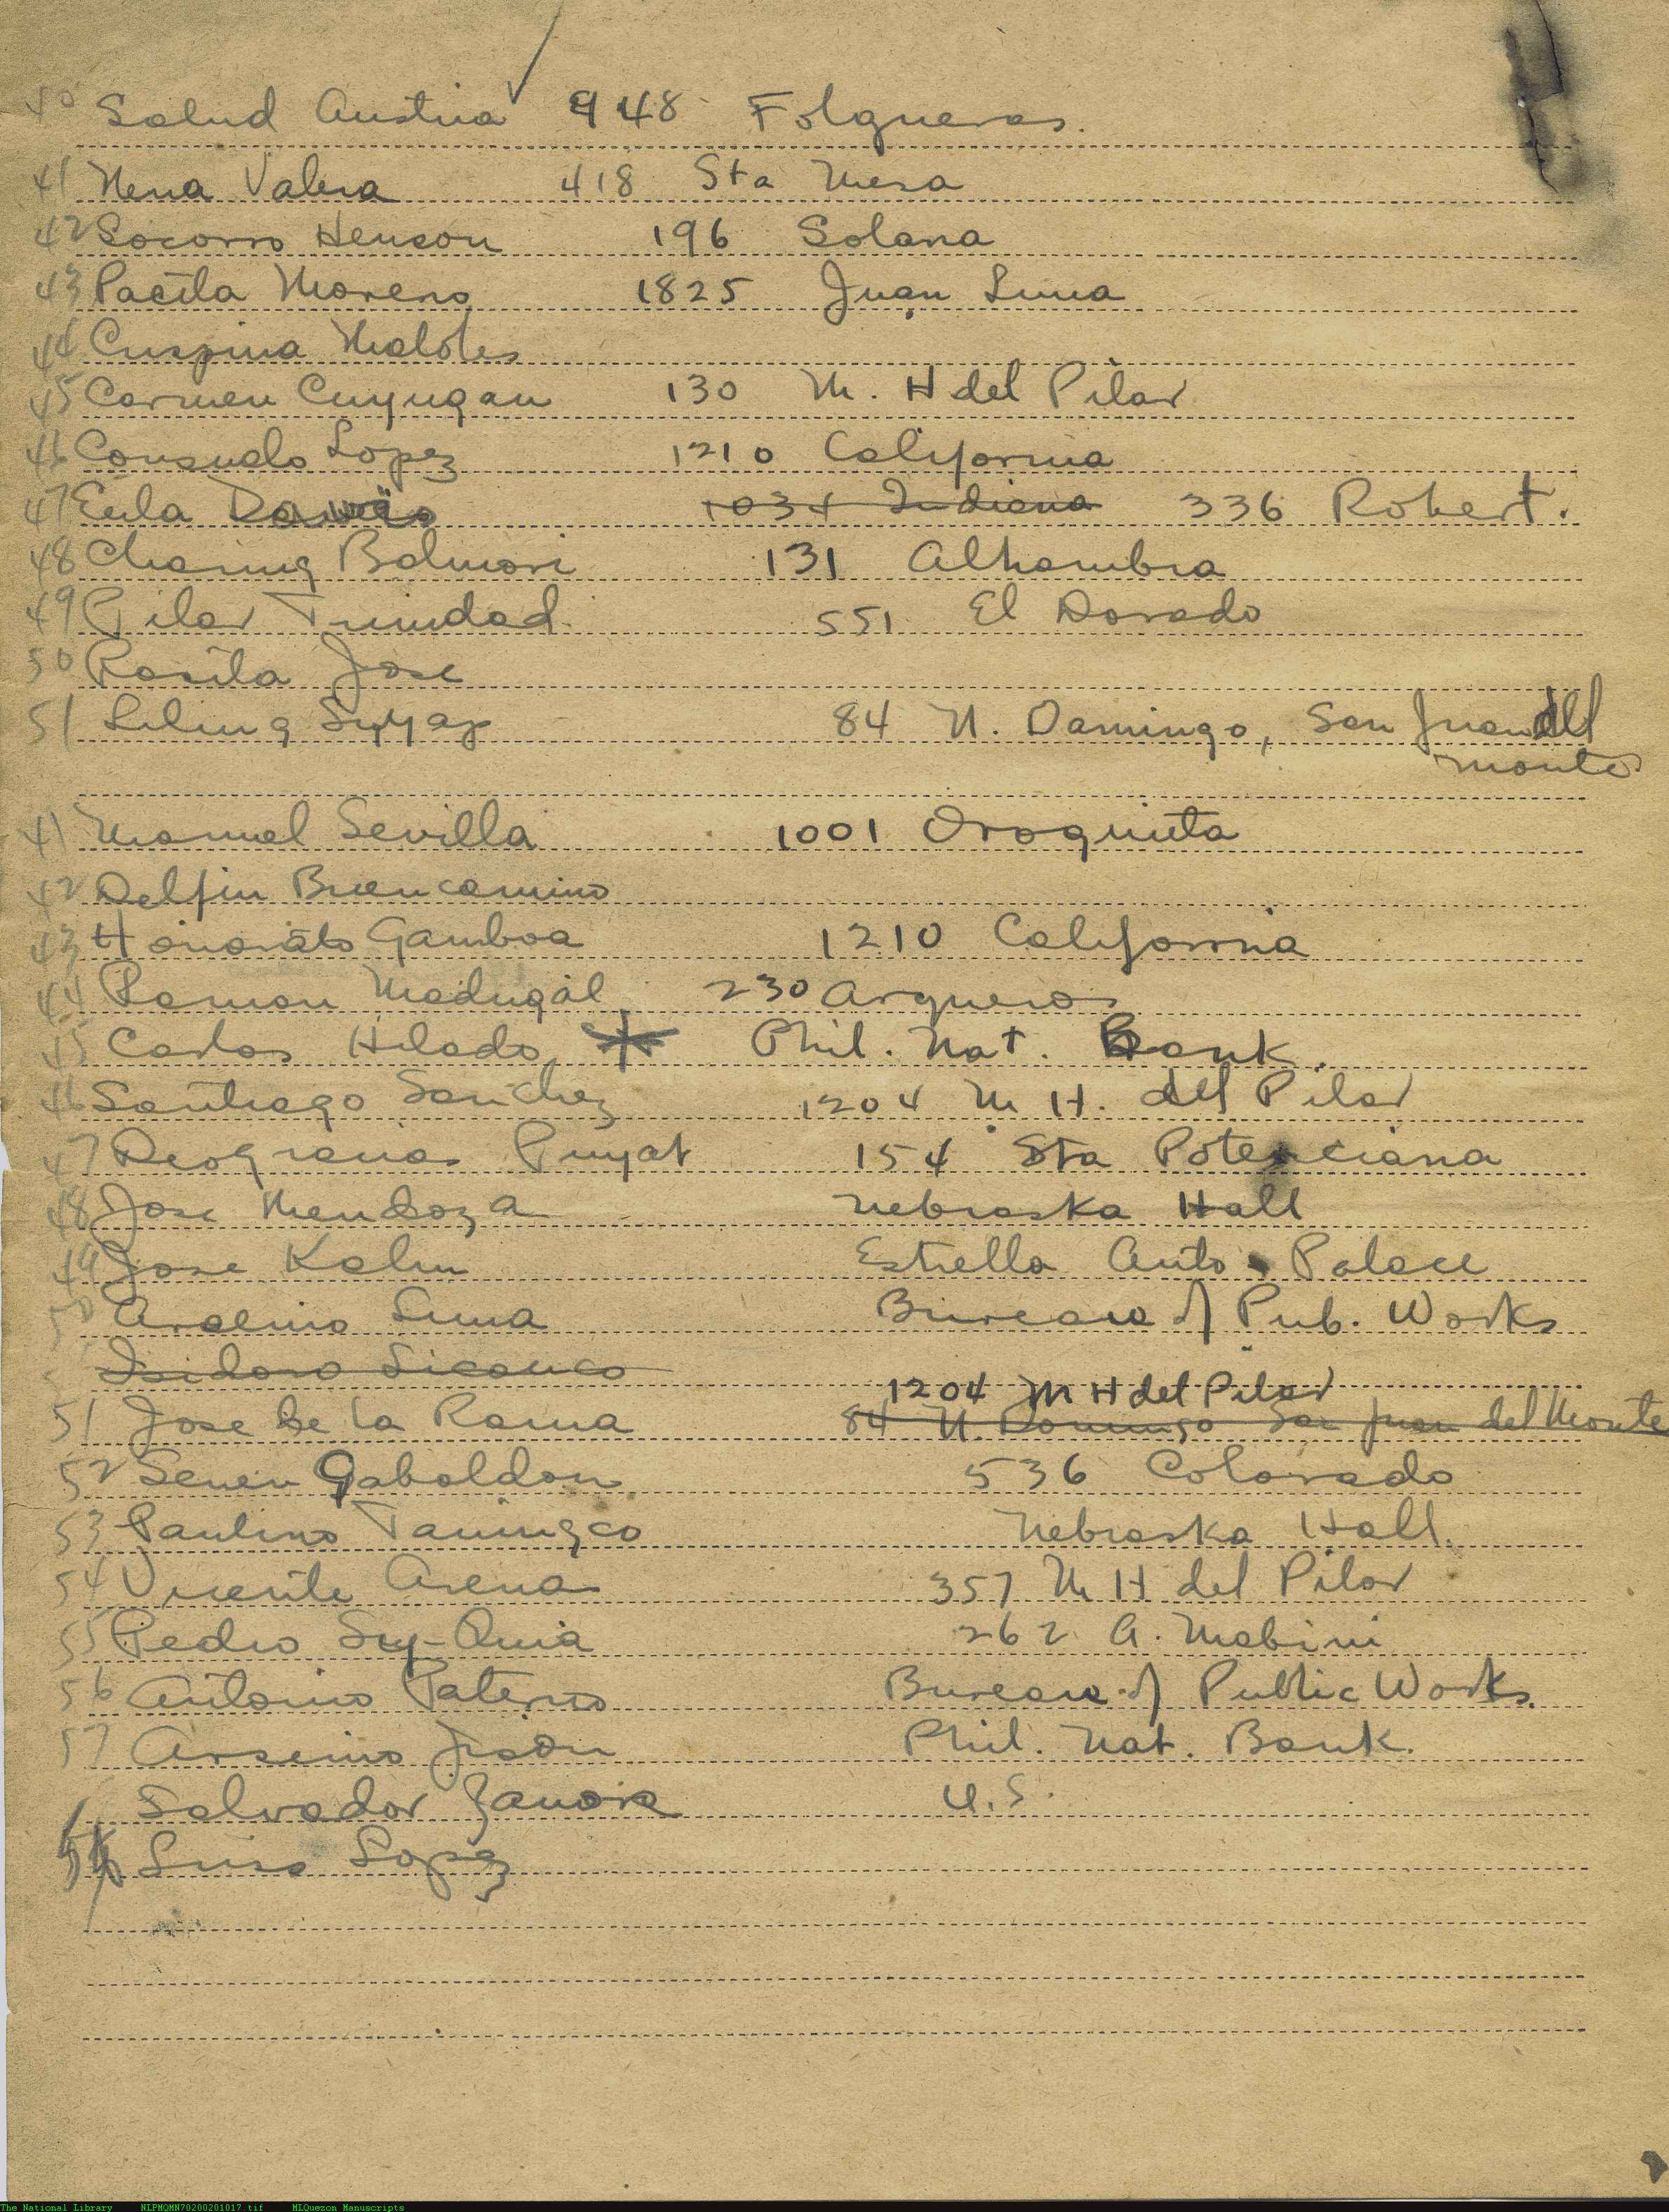 40 Salud Austria 948 Folgueras.
41 Nena Valera 418 Sta Mesa
42 Socorro Henson 196 Solana
43 Pacita Moreno 1825 Juan Luna
44 Crispina Maloles
45 Carmen Cuyugan 130 M. H del Pilar
46 Consuelo Lopez 1210 California
47 Eula 1034 Indiana 336 Robert.
48 Charing Balmori 131 Alhambra
49 Pilar Trinidad 551 El Dorado
50 Rosita Jose
51 Liling Syyap 84 N. Domingo, San Juan del
Monte
41 Manuel Sevilla 1001 Oroquieta
42 Delfin Buencamino
43 Honorato Gamboa 1210 California
44 Ramon Madrigal 230 Arqueros
45 Carlos Hilado Phil. Nat. Bank.
46 Santiago Sanchez 1204 M H. del Pilar
47 Deogracias Puyat 154 Sta Potenciana
48 Jose Mendoza Nebraska Hall
49 Jose Kalin Estrella Auto Palace
50 Arsenio Luna Bureau of Pub. Works
Isidoro Sicanco
1204 M H del Pilar
51 Jose de la Rama 84 N. Domingo San Juan del Monte
52 Senen Gabaldon 536 Colorado
53 Paulino Tamingco Nebraska Hall.
54 Vicente Arena 357 M H del Pilar
55 Pedro Sy-Quia 262 A. Mabini
56 Antonio Paterno Bureau of Public Works.
57 Arsenio Jison Phil. Nat. Bank.
Salvador Zamora U.S.
Luis Lopez
The National Library NLPMQMN70200201017.tif MLQuezon Manuscripts